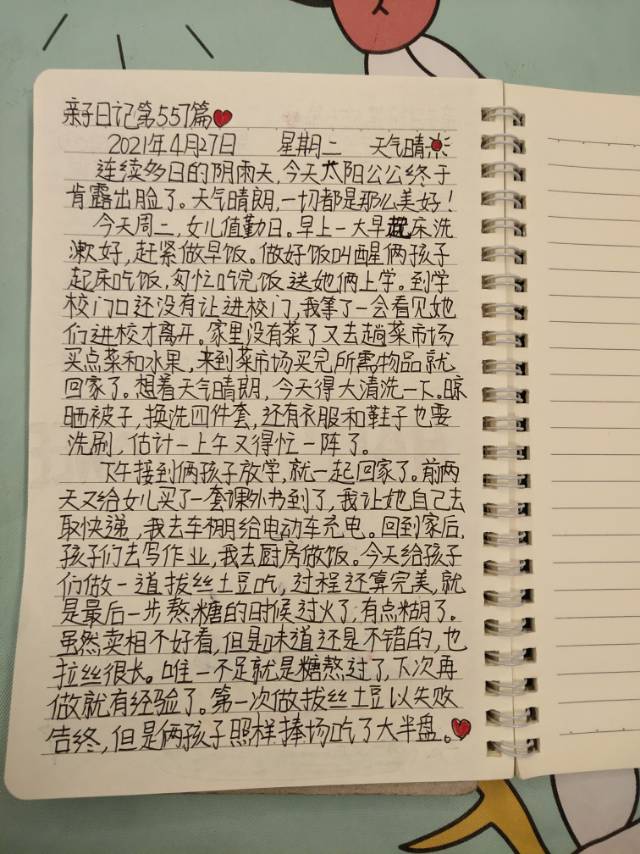 亲子日记第557篇
2021年4月27日 星期二 天气晴
连续多日的阴雨天,今天太阳公公终于
肯露出脸了。天气晴朗,一切都是那么美好!
今天周二,女儿值勤日。早上一大早起床洗
漱好,赶紧做早饭。做好饭叫醒俩孩子
起床吃饭,匆忙吃完饭送她俩上学。到学
校门口还没有让进校门,我等了一会看见她
们进校才离开。家里没有菜了又去趟菜市场
买点菜和水果,来到菜市场买完所需物品就
回家了。想着天气晴朗,今天得大清洗一下。晾
晒被子,换洗四件套,还有衣服和鞋子也要
洗刷,估计一上午又得忙一阵了。
下午接到俩孩子放学,就一起回家了。前两
天又给女儿买了一套课外书到了,我让她自己去
取快递,我去车棚给电动车充电。回到家后,
孩子们去写作业,我去厨房做饭。今天给孩子
们做一道拔丝土豆吃,过程还算完美,就
是最后一步熬糖的时候过火了,有点糊了。
虽然卖相不好看,但是味道还是不错的,也
拉丝很长。唯一不足就是糖熬过了,下次再
做就有经验了。第一次做拔丝土豆以失败
告终,但是俩孩子照样捧场吃了大半盘。